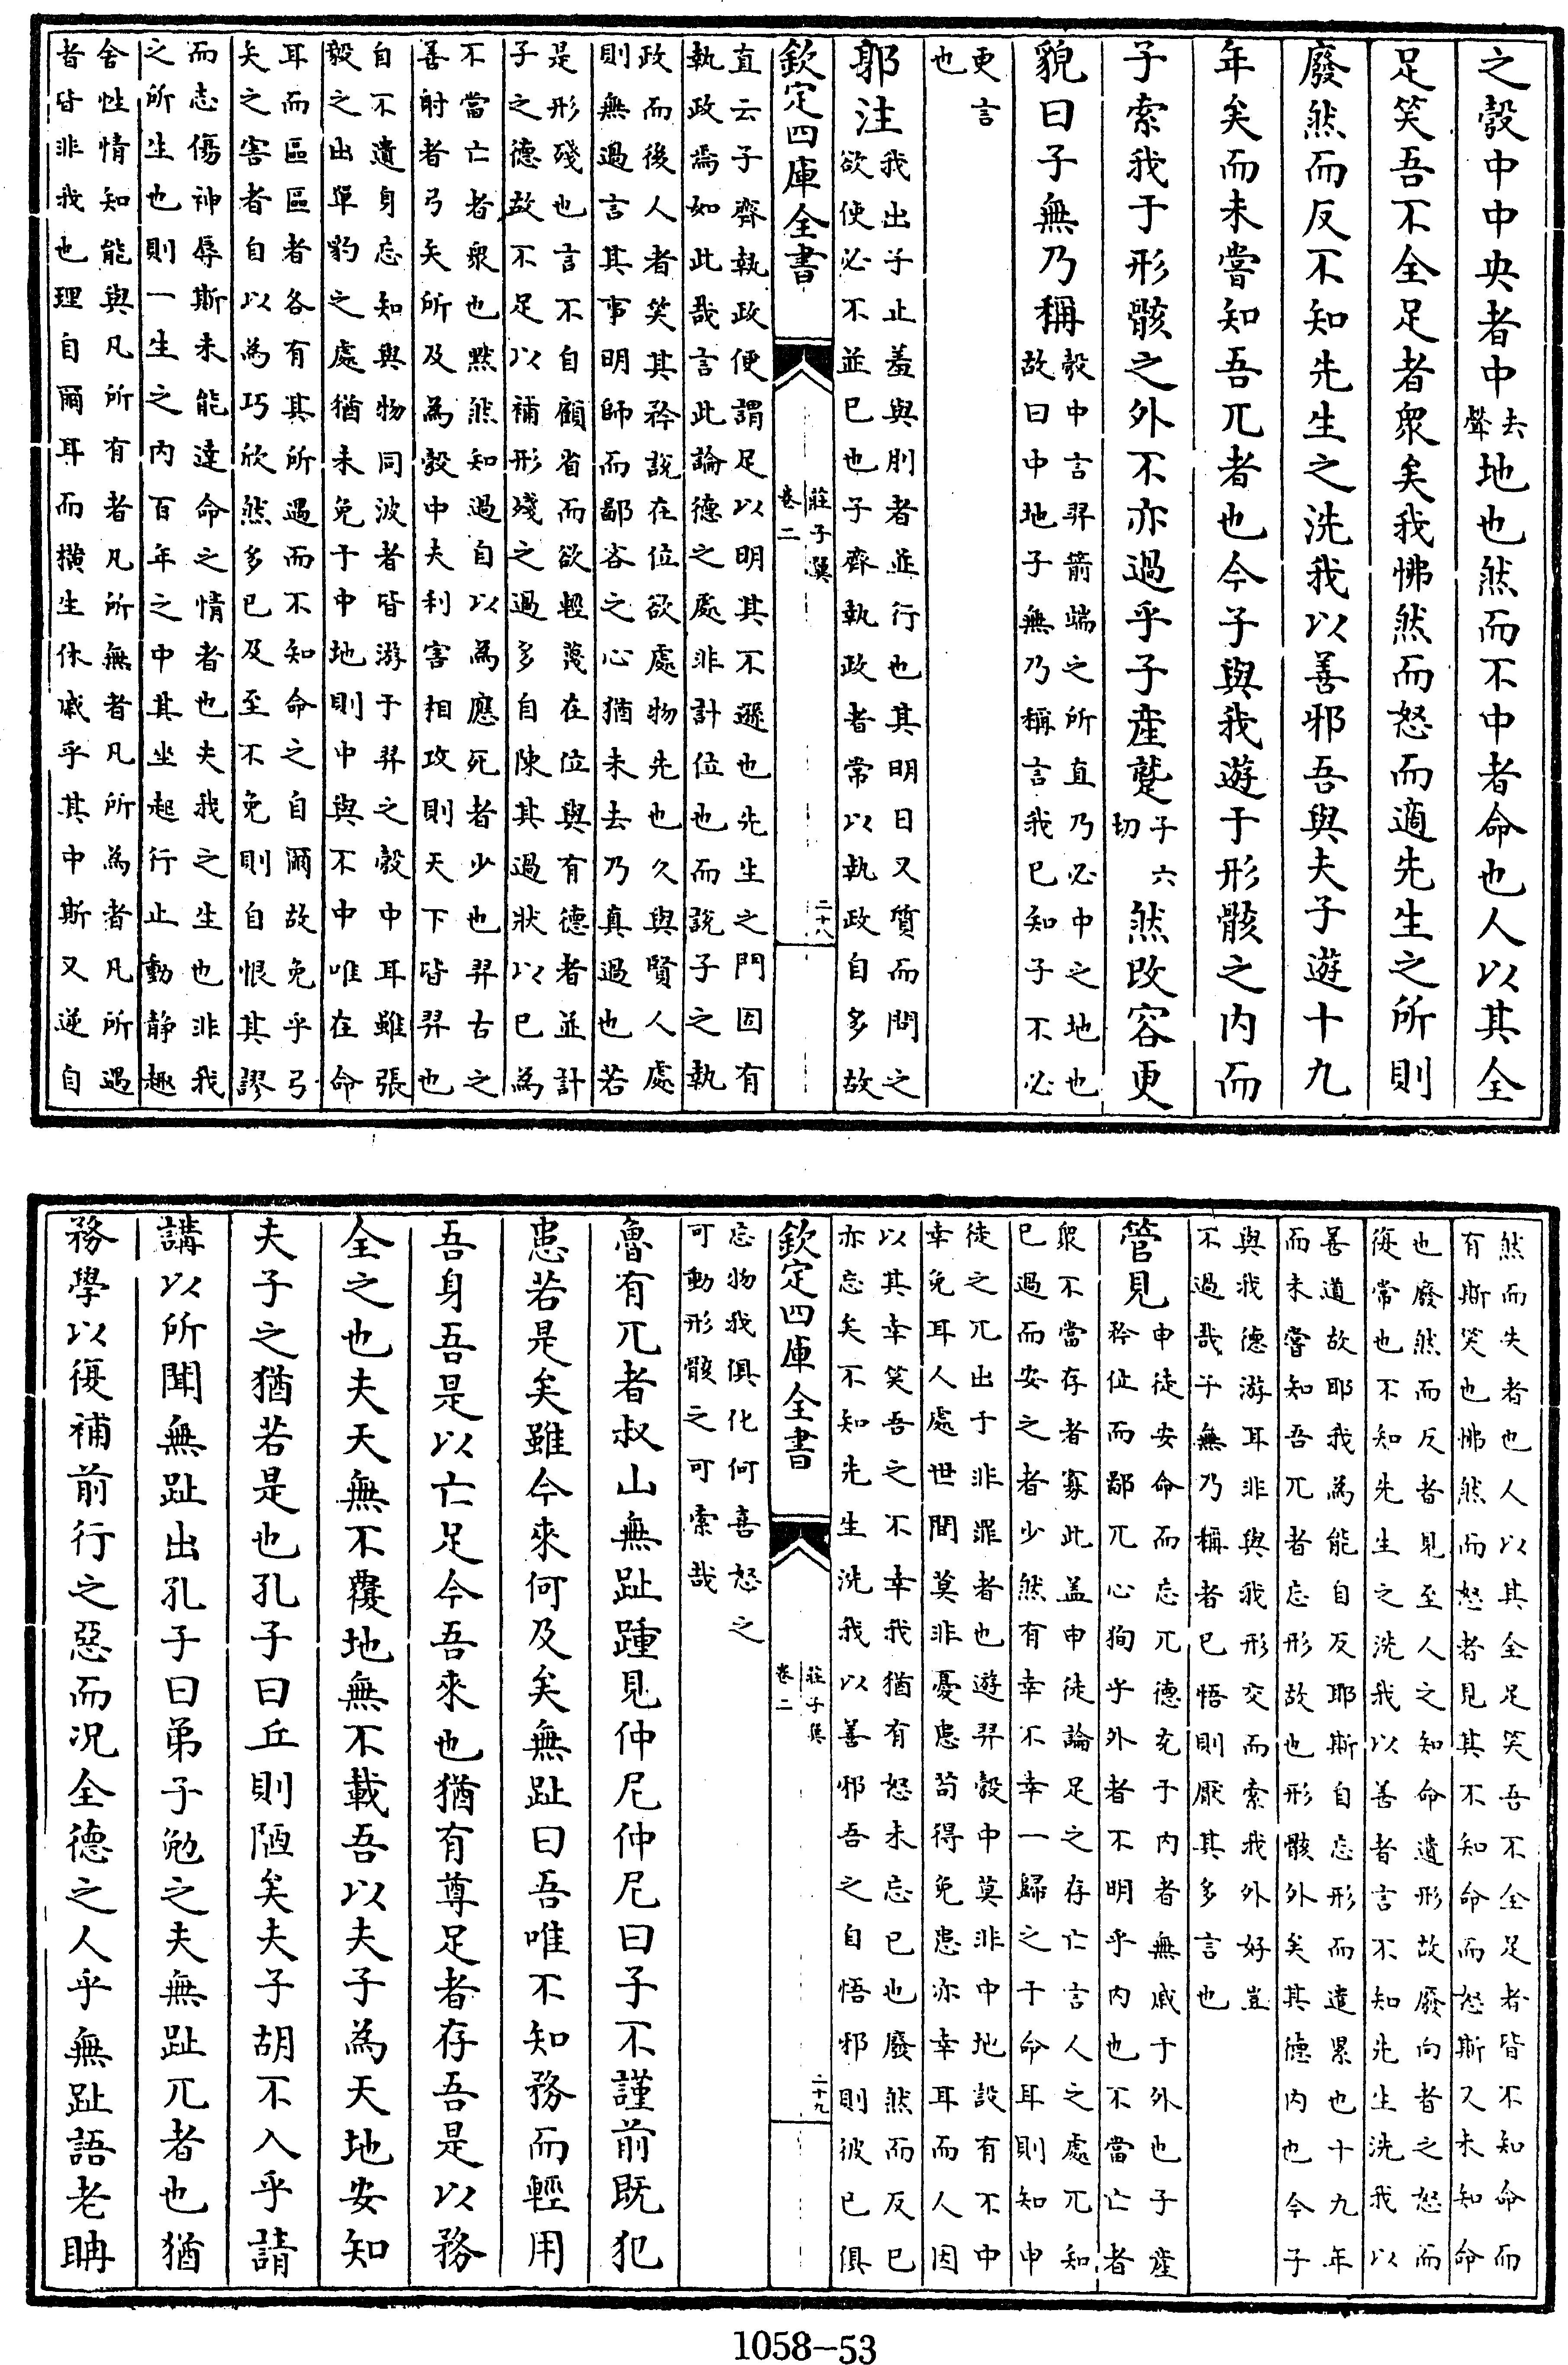 之彀中中央者中去
聲地也然而不中者命也人以其全
足笑吾不全足者衆矣我怫然而怒而適先生之所則
廢然而反不知先生之洗我以善邪吾與夫子遊十九
年矣而未嘗知吾兀者也今子與我遊于形骸之内而
子索我于形骸之外不亦過乎子産蹵子六
切然改容更
貌曰子無乃稱彀中言羿箭端之所直乃必中之地也
故曰中地子無乃稱言我已知子不必
更言
也
郭注我出子止羞與刖者並行也其明日又質而問之
欲使必不並已也子齊執政者常以執政自多故
欽定四庫全書
莊子翼
卷二
二十八
直云子齊執政便謂足以明其不遜也先生之門固有
執政焉如此哉言此論德之處非計位也而說子之執
政而後人者笑其矜說在位欲處物先也久與賢人處
則無過言其事明師而鄙吝之心猶未去乃真過也若
是形殘也言不自顧省而欲輕蔑在位與有德者並計
子之德故不足以補形殘之過多自陳其過狀以已為
不當亡者衆也黙然知過自以為應死者少也羿古之
善射者弓矢所及為彀中夫利害相攻則天下皆羿也
自不遺身忘知與物同波者皆游于羿之彀中耳雖張
毅之出單豹之處猶未免于中地則中與不中唯在命
耳而區區者各有其所遇而不知命之自爾故免乎弓
矢之害者自以為巧欣然多已及至不免則自恨其謬
而志傷神辱斯未能達命之情者也夫我之生也非我
之所生也則一生之内百年之中其坐起行止動靜趣
舍性情知能與凡所有者凡所無者凡所為者凡所遇
者皆非我也理自爾耳而橫生休戚乎其中斯又逆自
然而失者也人以其全足笑吾不全足者皆不知命而
有斯笑也怫然而怒者見其不知命而怒斯又未知命
也廢然而反者見至人之知命遺形故廢向者之怒而
復常也不知先生之洗我以善者言不知先生洗我以
善道故耶我為能自反耶斯自忘形而遺累也十九年
而未嘗知吾兀者忘形故也形骸外矣其德内也今子
與我德游耳非與我形交而索我外好豈
不過哉子無乃稱者已悟則厭其多言也
管見申徒安命而忘兀德充于内者無戚于外也子産
矜位而鄙兀心狥乎外者不明乎内也不當亡者
衆不當存者寡此盖申徒論足之存亡言人之處兀知
已過而安之者少然有幸不幸一歸之于命耳則知申
徒之兀出于非罪者也遊羿彀中莫非中地設有不中
幸免耳人處世間莫非憂患茍得免患亦幸耳而人因
以其幸笑吾之不幸我猶有怒未忘已也廢然而反已
亦忘矣不知先生洗我以善邪吾之自悟邪則彼已俱
欽定四庫全書
莊子翼
卷二
二十九
忘物我俱化何喜怒之
可動形骸之可索哉
魯有兀者叔山無趾踵見仲尼仲尼曰子不謹前既犯
患若是矣雖今來何及矣無趾曰吾唯不知務而輕用
吾身吾是以亡足今吾來也猶有尊足者存吾是以務
全之也夫天無不覆地無不載吾以夫子為天地安知
夫子之猶若是也孔子曰丘則陋矣夫子胡不入乎請
講以所聞無趾出孔子曰弟子勉之夫無趾兀者也猶
務學以復補前行之惡而况全德之人乎無趾語老聃
1058-53